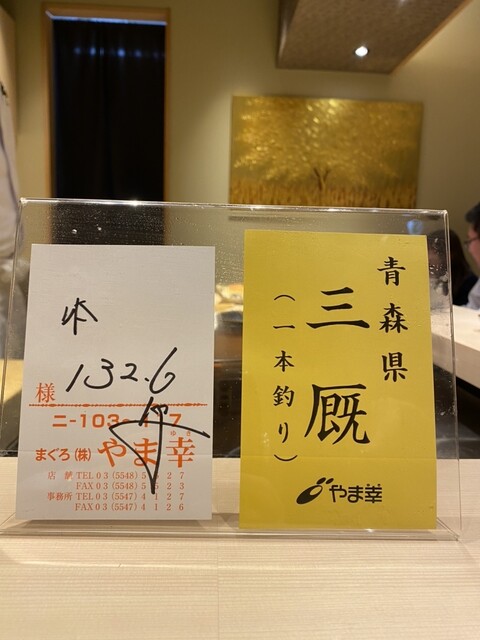 132.6
様
ニ-103
7
まぐろ(株)やま幸
店舗 TEL03(5548)5 27
FAX03(5548)5 23
事務所 TEL03(5547)4127
FAX03(5547)4126
青森県
三厩
(一本釣り)
やま幸